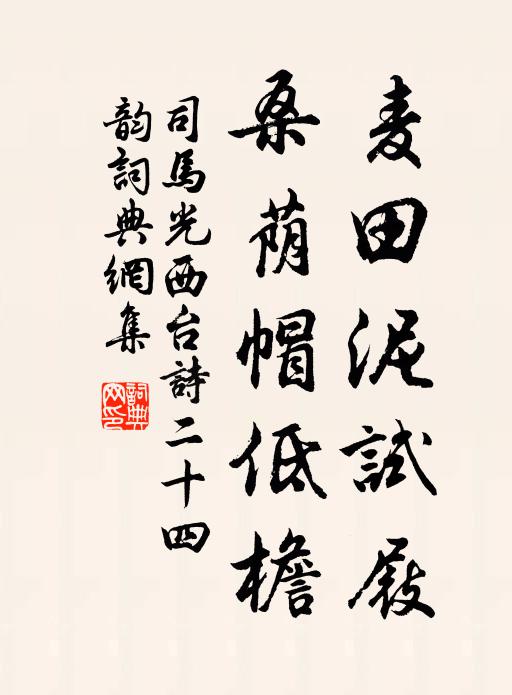 麦田泥試屐
桑荫帽低檐
司馬光西台詩二十四
韵詞典網集
詞典
网印